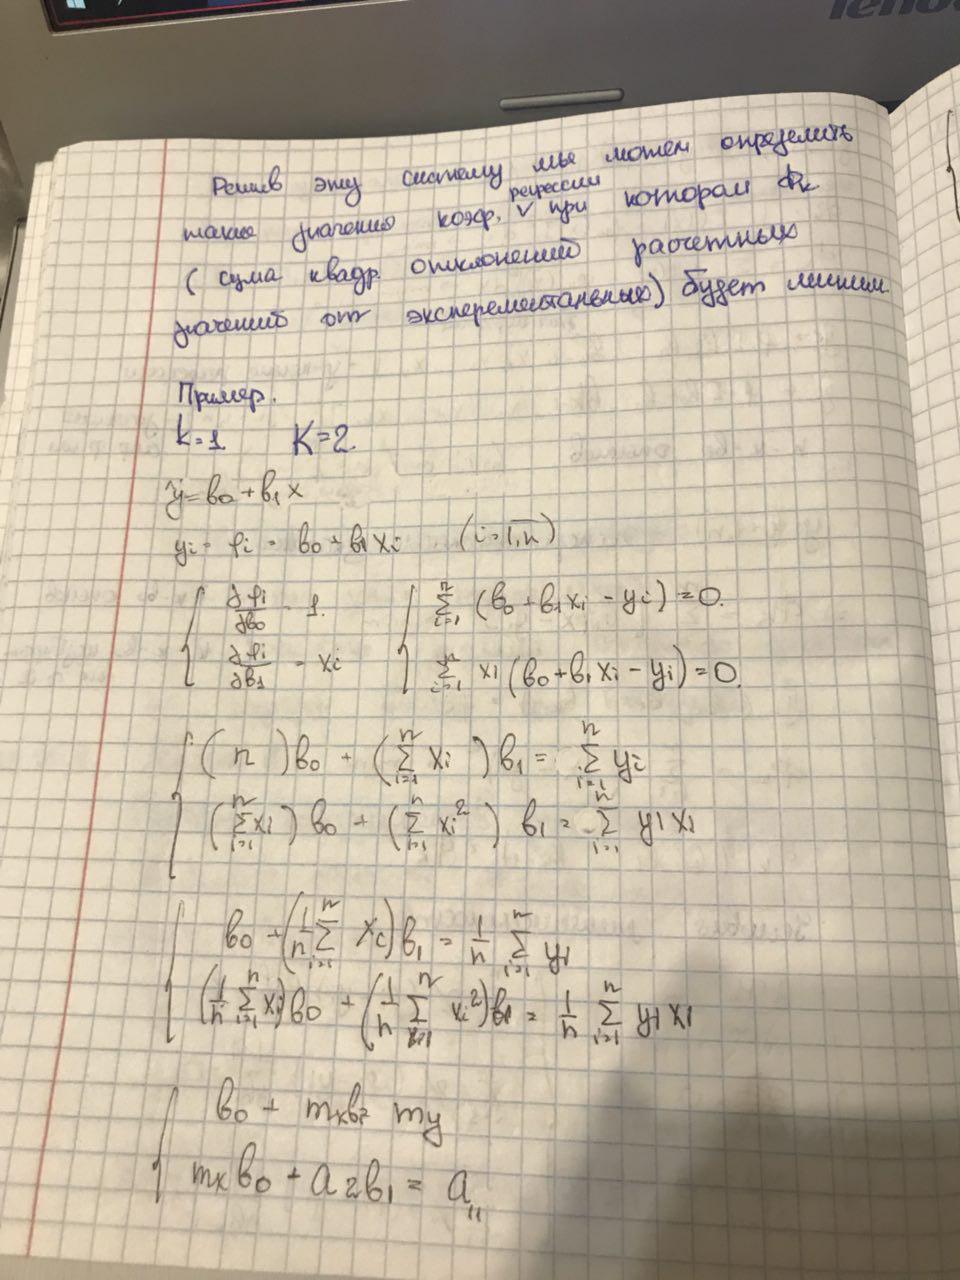 leno
Решив эту систему мы можем определить
такие значения коэф. регрессии при котором Фк
(сума квадр. отклонений расчетных
значений от эксперементальных) будет миним.
Пример.
k=1 K=2
ỹ=b₀+b₁x
yi = φi = b₀+b₁xi (i=1,n)
{ ∂φi/∂b₀ = 1. { Σ(i=1..n) (b₀+b₁xi−yi)=0.
{ ∂φi/∂b₁ = xi { Σ(i=1..n) xi(b₀+b₁xi−yi)=0.
{ (n)b₀ + (Σ(i=1..n) xi)b₁ = Σ(i=1..n) yi
{ (Σ(i=1..n) xi)b₀ + (Σ(i=1..n) xi²)b₁ = Σ(i=1..n) yi xi
{ b₀ + (1/n Σ(i=1..n) xi)b₁ = 1/n Σ(i=1..n) yi
{ (1/n Σ(i=1..n) xi)b₀ + (1/n Σ(i=1..n) xi²)b₁ = 1/n Σ(i=1..n) yi xi
{ b₀ + mxb₁= my
{ mxb₀ + a₂b₁ = a₁₁